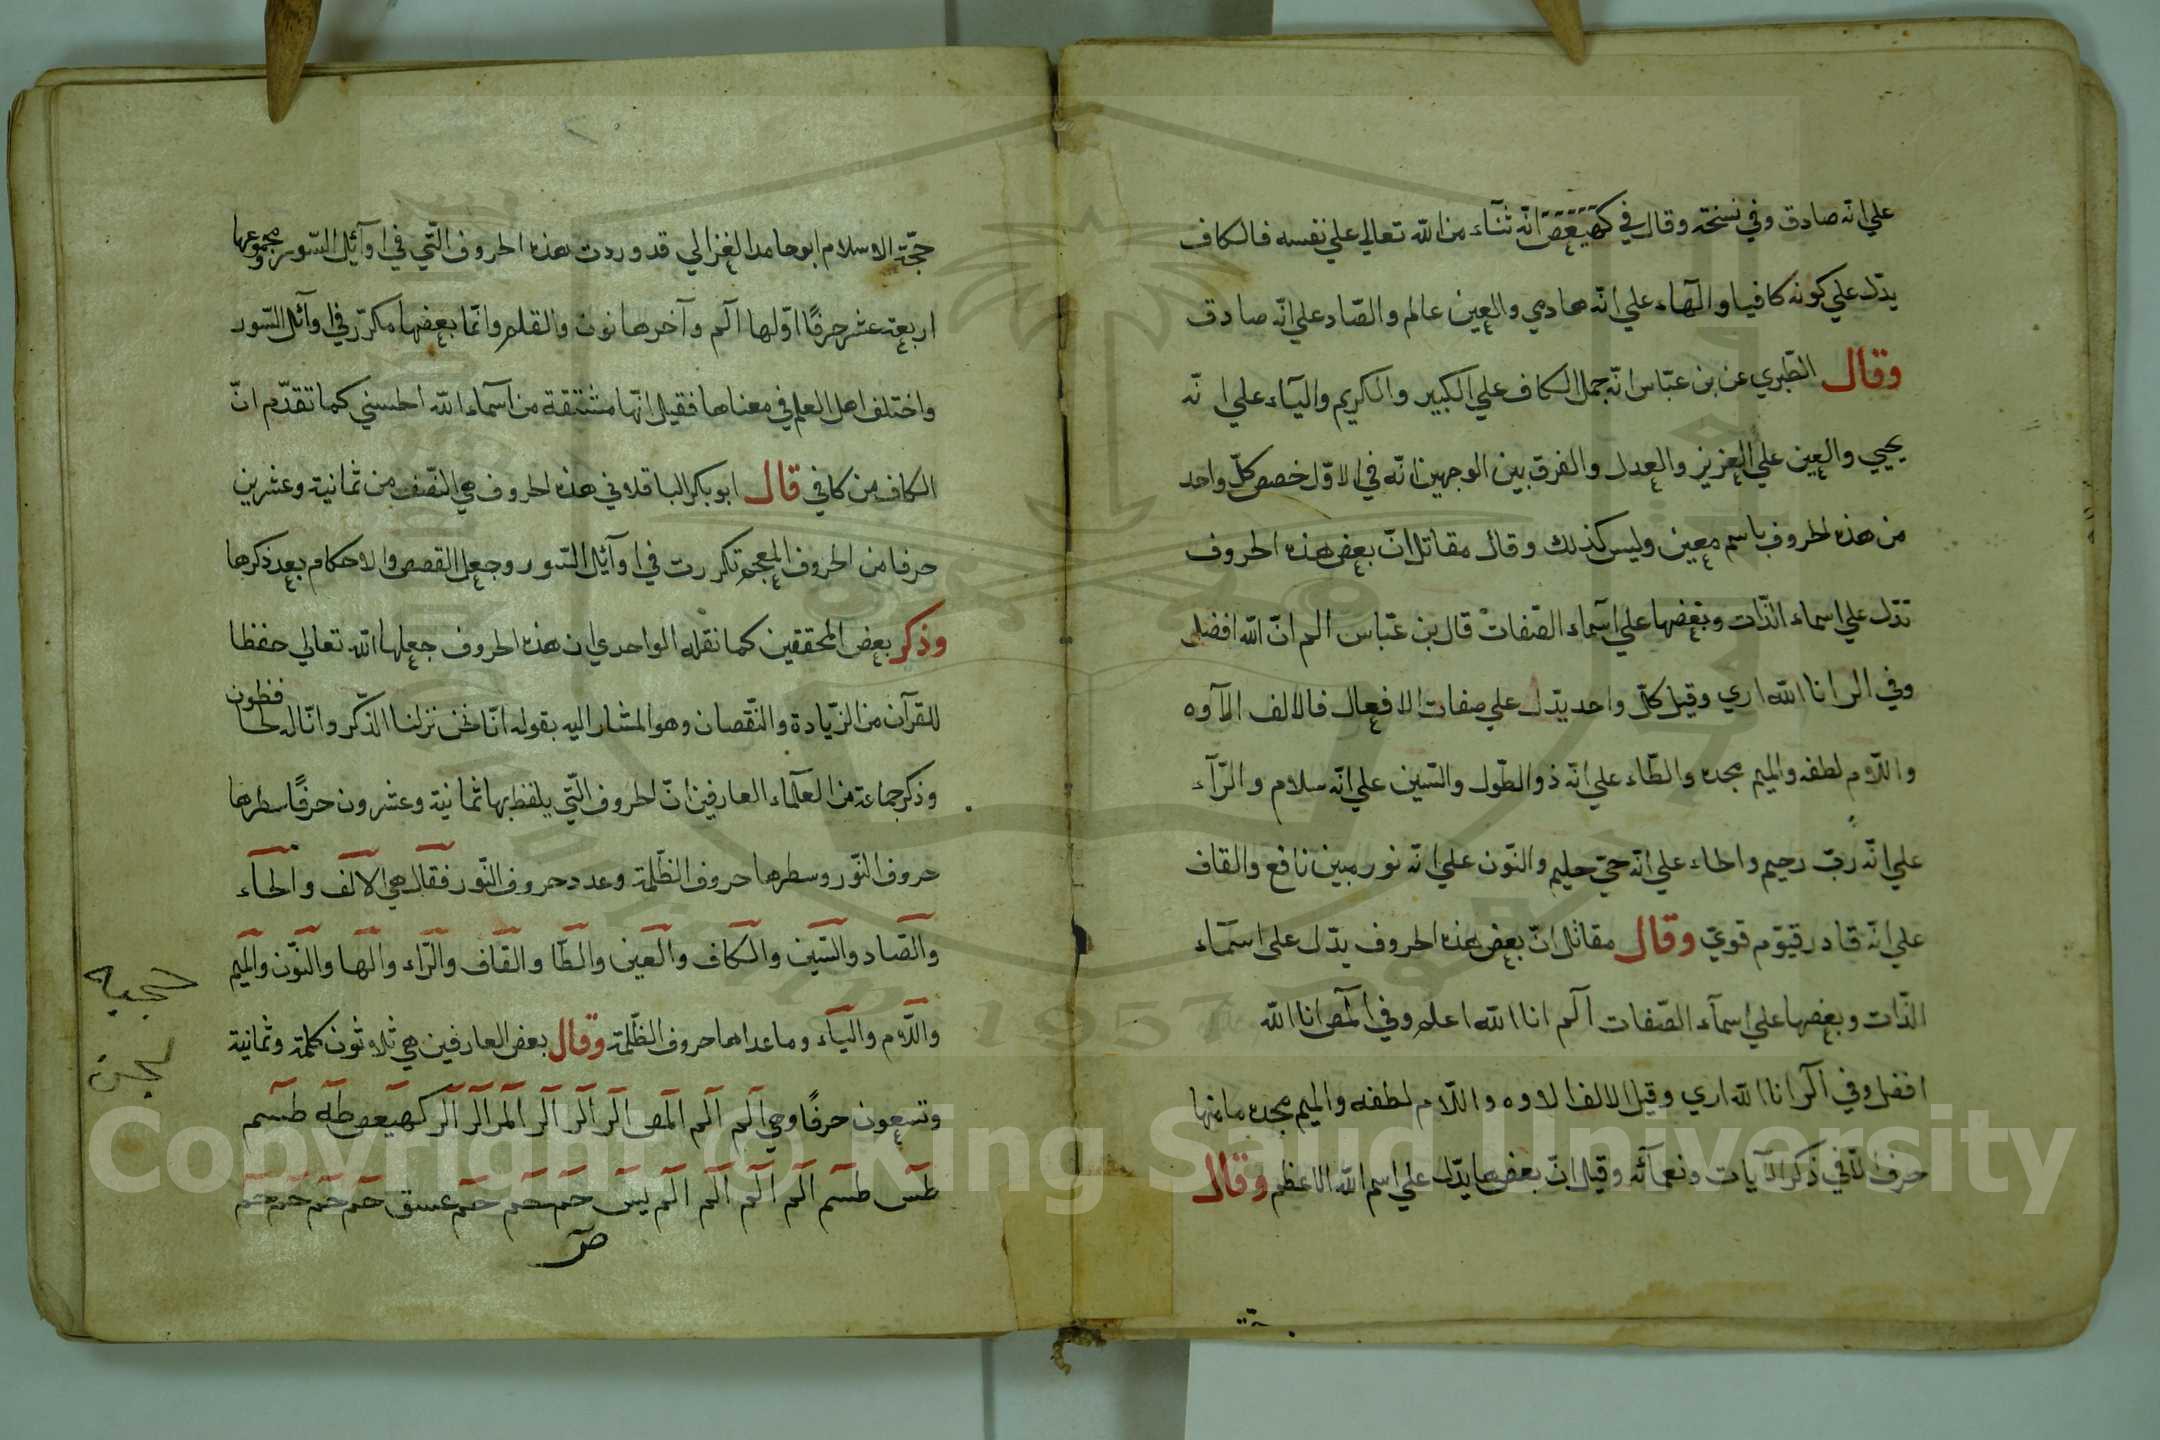 علي انّه صادق وفي نسخة وقال في كهيعص انّه ثنآء من الله تعالي علي نفسه فالكاف
يدّل علي كونه كافيا والهآء علي انّه هادي والعين عالم والصّاد علي انّه صادق
وقال الطّبري عن بن عبّاس انّه جمل الكاف علي الكبير والكريم واليآء علي انّه
يحيي والعين علي العزيز والعدل والفرق بين الوجهين انّه في الاوّل خصص كلّ واحد
من هذه الحروف باسم معين وليس كذلك وقال مقاتل انّ بعض هذه الحروف
تدّل علي اسماء الذّات وبعضها علي اسمآء الصّفات قال بن عبّاس الم انّ الله افضل
وفي الر انا الله اري وقيل كلّ واحد يدّل علي صفات الافعال فالالف الآوه
واللّام لطفه والميم مجده والطّاء علي انّه ذو الطّول والسّين علي انّه سلام والرّآء
علي انّه ربّ رحيم والحاء علي انّه حيّ حليم والنّون علي انّه نور مبين نافع والقاف
علي انّه قادر قيوّم قويّ وقال مقاتل انّ بعض هذه الحروف يدّل علي اسمآء
الذّات وبعضها علي اسمآء الصّفات الم انا الله اعلم وفي المص انا الله
افضل وفي الر انا الله اري وقيل الالف الاوه واللّام لطفه والميم مجده ما منها
حرف الّا في ذكر الآيات ونعمآئه وقيل انّ بعضها يدّل علي اسم الله الاعظم وقال
حجّة الاسلام ابو حامد الغزالي قد وردت هذه الحروف الّتي في اوآئل السّور ومجموعها
اربعة عشر حرفًا اوّلها الم وآخرها نون والقلم وانّما بعضها مكرّر في اوآئل السّور
واختلف اهل العلم في معناها فقيل انّها مشتقة من اسمآء الله الحسني كما تقدّم انّ
الكاف من كافي قال ابو بكر الباقلاني هذه الحروف هي النّصف من ثمانية وعشرين
حرفا من الحروف المعجم تكررت في اوآئل السّور وجعل القصص والاحكام بعد ذكرها
وذكر بعض المحققين كما نقله الواحدي ان هذه الحروف جعلها الله تعالي حفظا
للقرآن من الزّيادة والنّقصان وهو المشار اليه بقوله انّا نحن نزلنا الذّكر وانّا له لحافظون
وذكر جماعة من العلمآء العارفين انّ الحروف الّتي يلفظ بها ثمانية وعشرون حرفًا سطرها
حروف النّور وسطرها حروف الظّلمة وعدد حروف النّور فقال هي الالف والحآء
والصّاد والسّين والكاف والعين والطّا والقاف والرّاء والها والنّون والميم
واللّام واليآء وما عداهما حروف الظّلمة وقال بعض العارفين هي ثلاثون كلمة وثمانية
وتسعون حرفًا وهي الم الم المص الر الر الر المر الر الر كهيعص طه طسم
طس طسم الم الم الم الم يس حم حم حم عسق حم حم حم حم
Copyright © King Saud University
1957